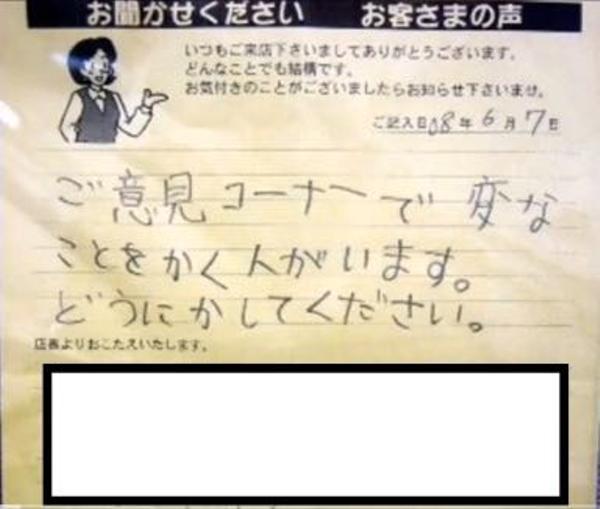 お聞かせください　お客さまの声
いつもご来店下さいましてありがとうございます。
どんなことでも結構です。
お気付きのことがございましたらお知らせ下さいませ。
ご記入日08年6月7日
ご意見コーナーで変な
ことをかく人がいます。
どうにかしてください。
店長よりおこたえいたします。